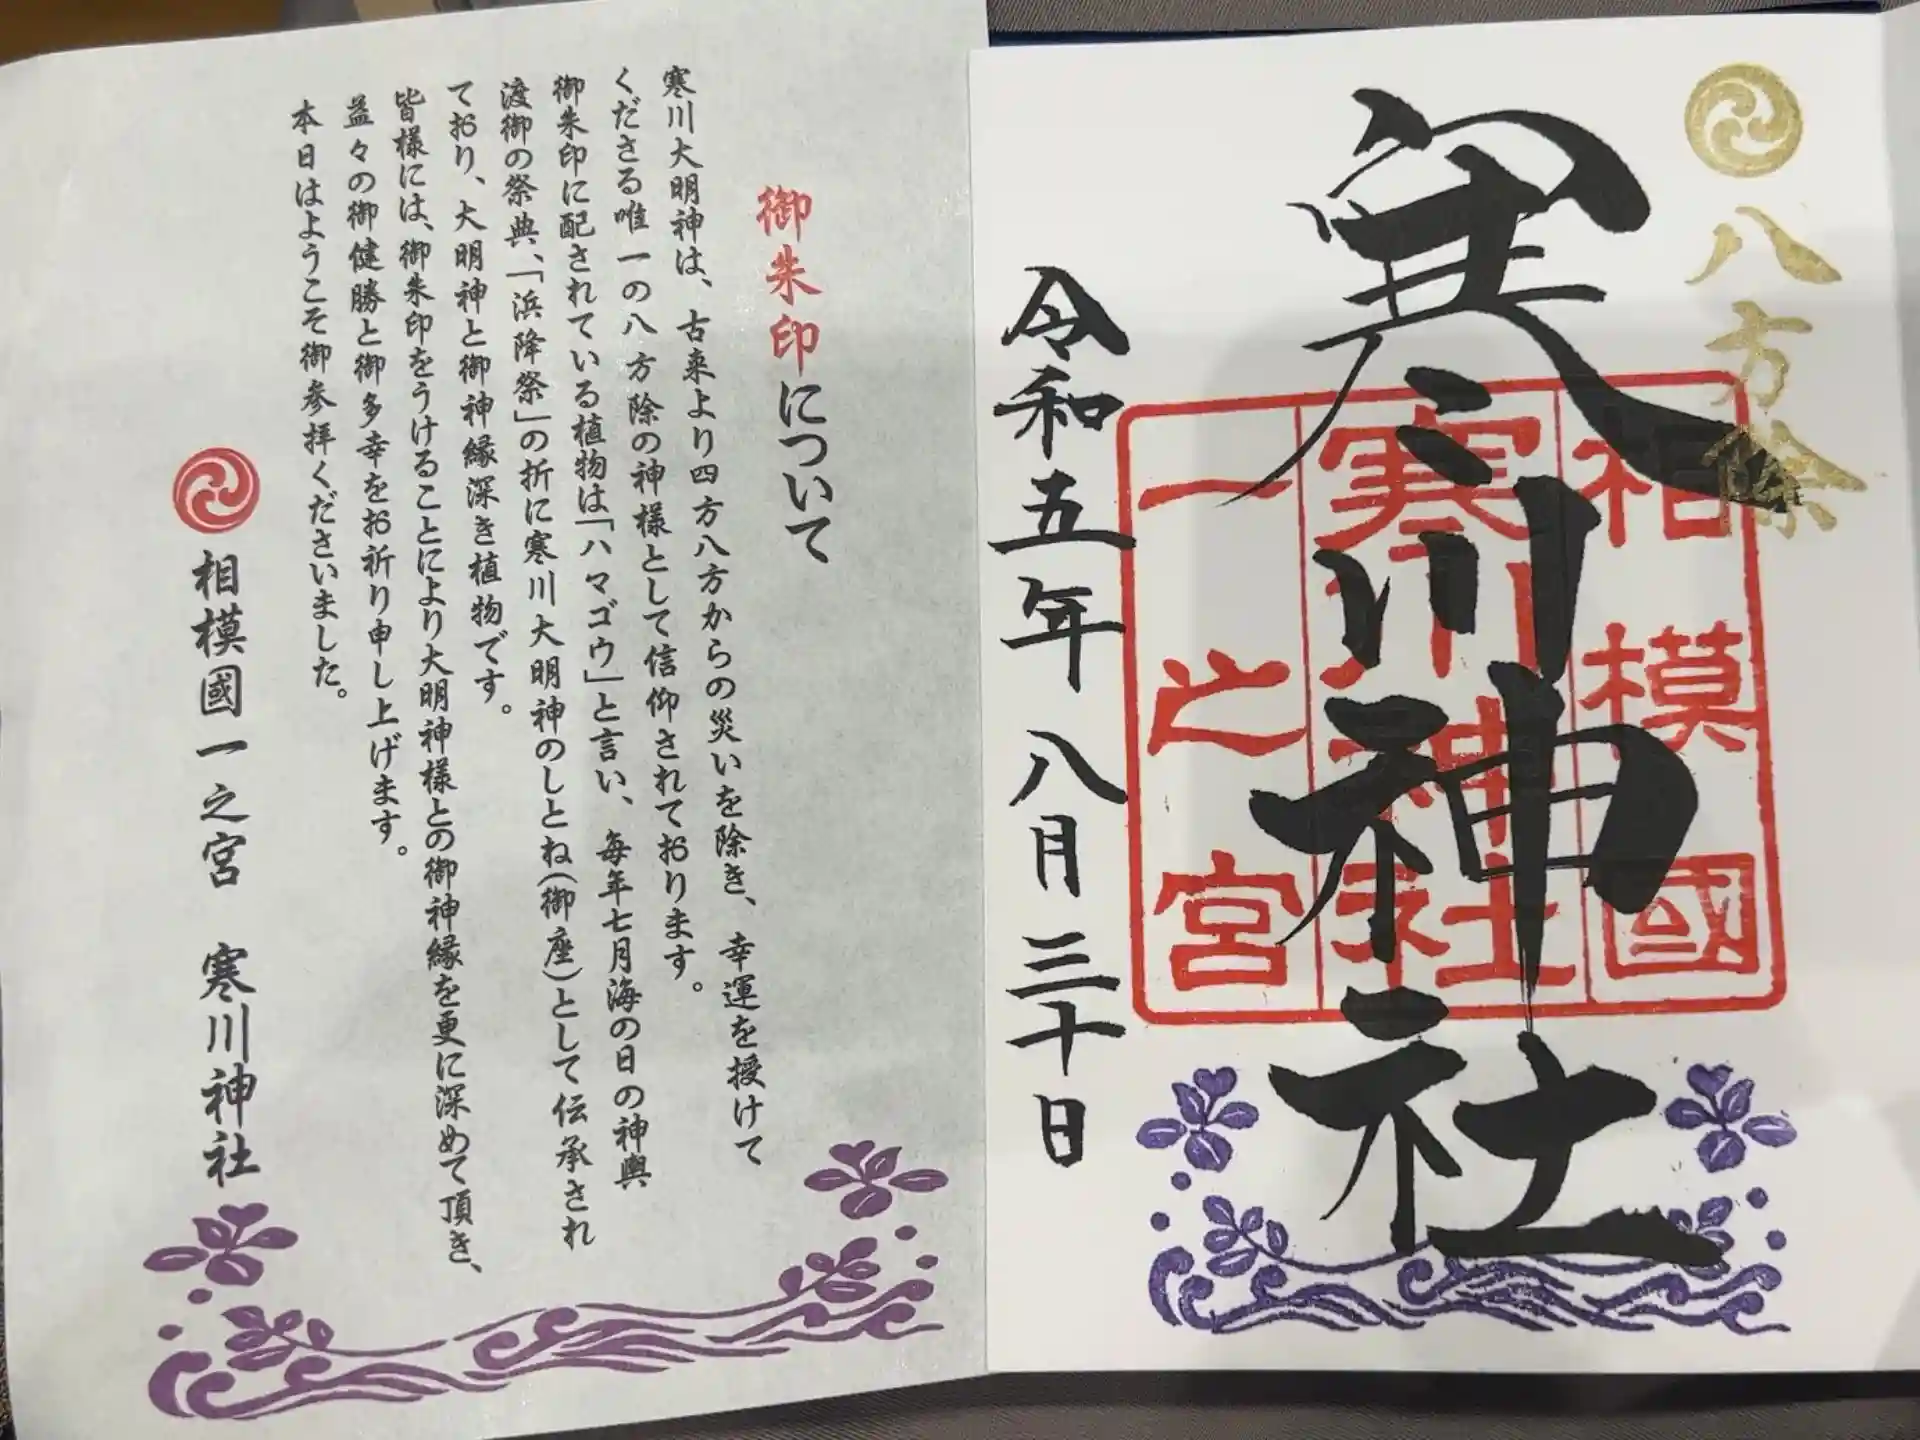 八方除
寒川神社
相模國
寒川神社
一之宮
令和五年八月三十日
御朱印について
寒川大明神は、古来より四方八方からの災いを除き、幸運を授けて
くださる唯一の八方除の神様として信仰されております。
御朱印に配されている植物は「ハマゴウ」と言い、毎年七月海の日の神輿
渡御の祭典、「浜降祭」の折に寒川大明神のしとね(御座)として伝承され
ており、大明神と御神縁深き植物です。
皆様には、御朱印をうけることにより大明神様との御神縁を更に深めて頂き、
益々の御健勝と御多幸をお祈り申し上げます。
本日はようこそ御参拝くださいました。
相模國一之宮 寒川神社